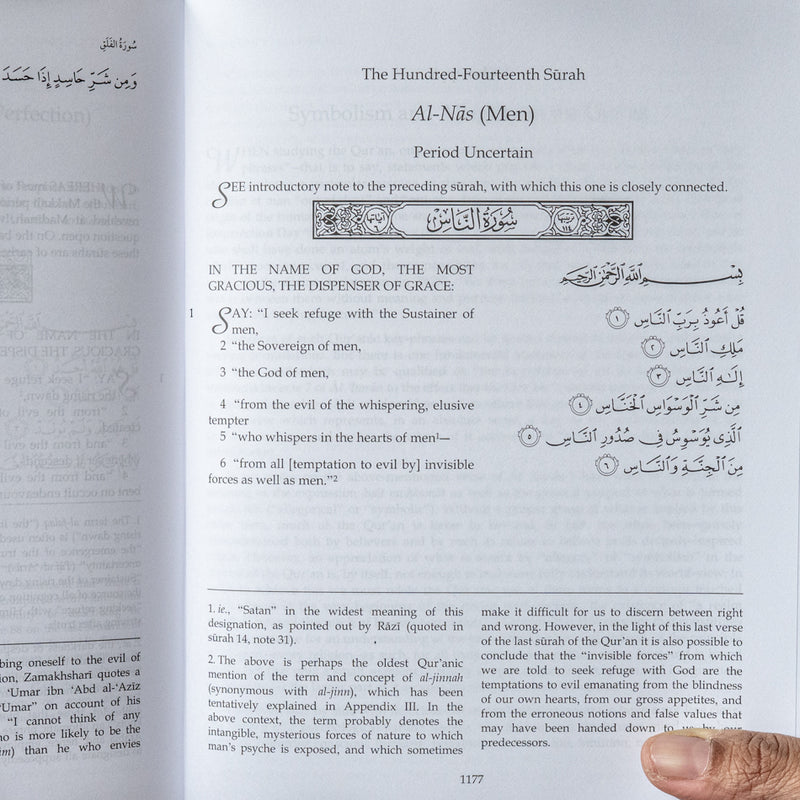 سُورَةُ الفَلَقِ
وَمِن شَرِّ حَاسِدٍ إِذَا حَسَدَ
bing oneself to the evil of
ion, Zamakhsharī quotes a
‘Umar ibn ‘Abd al-‘Azīz
Umar” on account of his
“I cannot think of any
ho is more likely to be the
than he who envies
The Hundred-Fourteenth Sūrah
Al-Nās (Men)
Period Uncertain
SEE introductory note to the preceding sūrah, with which this one is closely connected.
سُورَةُ النَّاسِ
IN THE NAME OF GOD, THE MOST
GRACIOUS, THE DISPENSER OF GRACE:
1 SAY: “I seek refuge with the Sustainer of
men,
2 “the Sovereign of men,
3 “the God of men,
4 “from the evil of the whispering, elusive
tempter
5 “who whispers in the hearts of men¹—
6 “from all [temptation to evil by] invisible
forces as well as men.”²
بِسْمِ اللَّهِ الرَّحْمَٰنِ الرَّحِيمِ
قُلْ أَعُوذُ بِرَبِّ النَّاسِ ١
مَلِكِ النَّاسِ ٢
إِلَٰهِ النَّاسِ ٣
مِن شَرِّ الْوَسْوَاسِ الْخَنَّاسِ ٤
الَّذِي يُوَسْوِسُ فِي صُدُورِ النَّاسِ ٥
مِنَ الْجِنَّةِ وَالنَّاسِ ٦
1. ie., “Satan” in the widest meaning of this
designation, as pointed out by Rāzī (quoted in
sūrah 14, note 31).
2. The above is perhaps the oldest Qur’anic
mention of the term and concept of al-jinnah
(synonymous with al-jinn), which has been
tentatively explained in Appendix III. In the
above context, the term probably denotes the
intangible, mysterious forces of nature to which
man’s psyche is exposed, and which sometimes
make it difficult for us to discern between right
and wrong. However, in the light of this last verse
of the last sūrah of the Qur’an it is also possible to
conclude that the “invisible forces” from which
we are told to seek refuge with God are the
temptations to evil emanating from the blindness
of our own hearts, from our gross appetites, and
from the erroneous notions and false values that
may have been handed down to us by our
predecessors.
1177